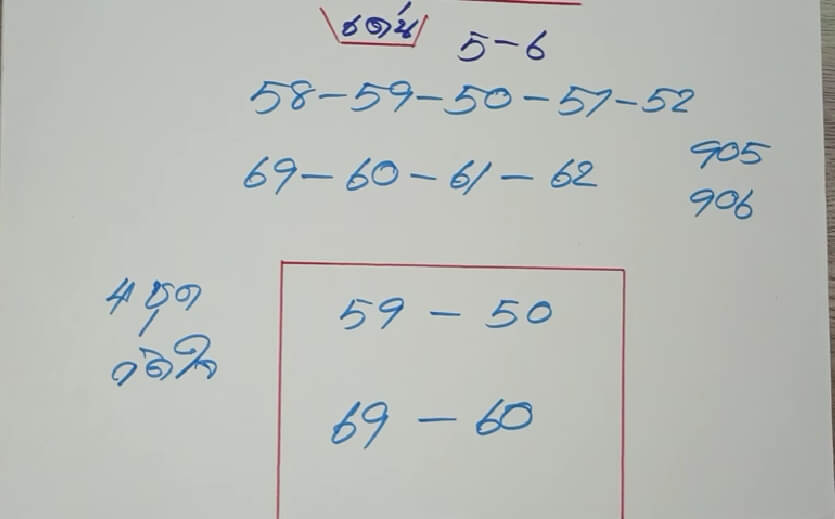 เด่น 5-6
58-59-50-51-52
69-60-61-62
905
906
4 ชุด
59 - 50
69 - 60